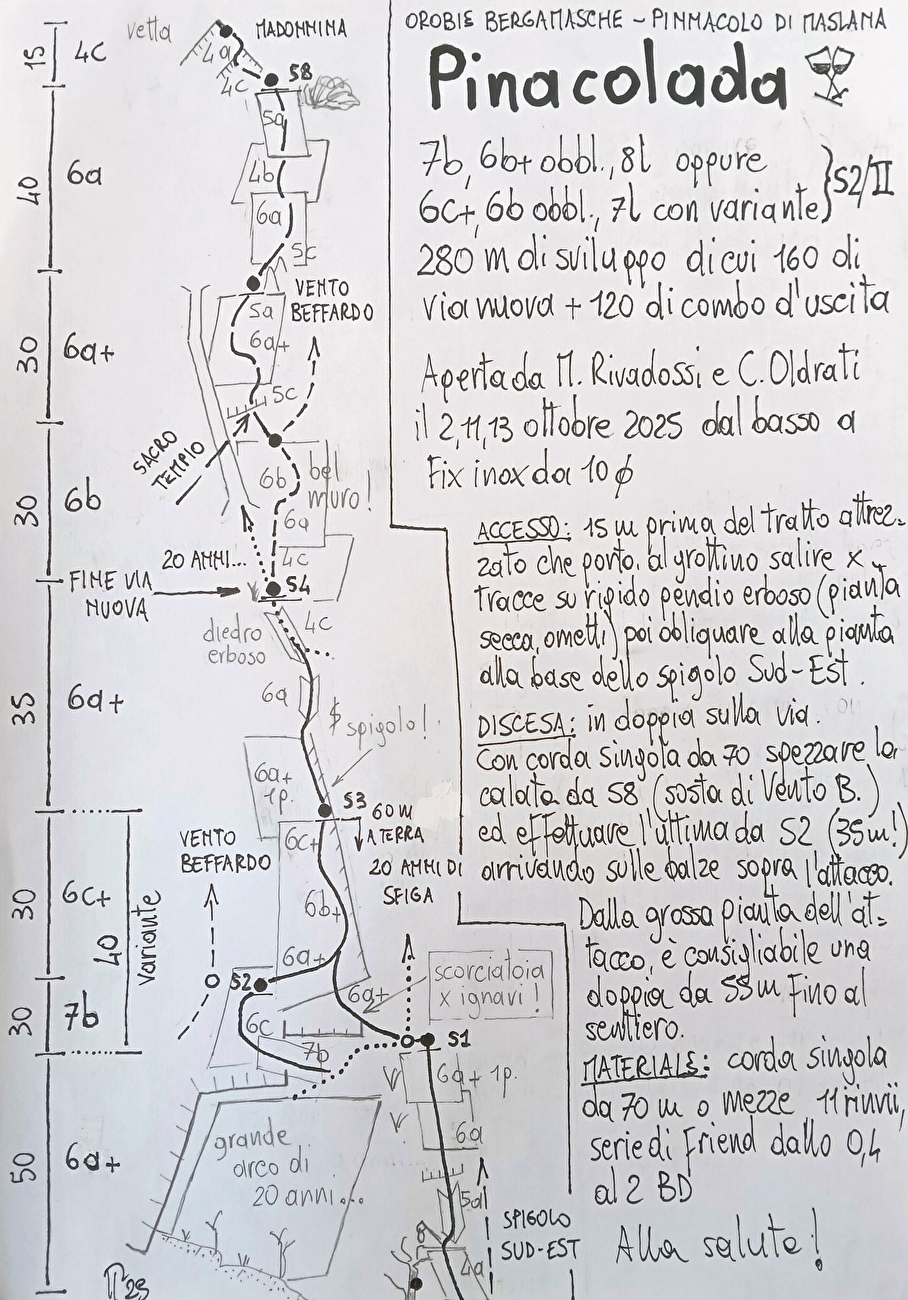 OROBIE BERGAMASCHE - PINNACOLO DI MASLANA
Pinacolada
7b, 6b+ obbl., 8l oppure
6c+, 6b obbl., 7l con variante
} S2/II
280 m di sviluppo di cui 160 di
via nuova + 120 di combo d'uscita
Aperta da M. Rivadossi e C. Oldrati
il 2, 11, 13 ottobre 2025 dal basso a
Fix inox da 10 ϕ
ACCESSO: 15 m prima del tratto attrez=
zato che porta al grottino salire x
tracce su ripido pendio erboso (pianta
secca, ometti) poi obliquare alla pianta
alla base dello spigolo Sud-Est.
DISCESA: in doppia sulla via.
Con corda singola da 70 spezzare la
calata da S8 (sosta di Vento B.)
ed effettuare l'ultima da S2 (35m!)
arrivando sulle balze sopra l'attacco.
Dalla grossa pianta dell'at=
tacco, è consigliabile una
doppia da 55m Fino al
sentiero.
MATERIALE: corda singola
da 70 m o mezze 11 rinvii,
serie di Friend dallo 0,4
al 2 BD
Alla salute!
vetta
MADONNINA
15
4c
4a
4c
S8
5a
40
6a
4b
6a
5c
VENTO
BEFFARDO
5a
30
6a+
6a+
5c
SACRO
TEMPIO
30
6b
6b
bel
muro!
6a
20 ANNI...
4c
FINE VIA
NUOVA
S4
diedro
erboso
4c
35
6a+
6a
spigolo!
6a+
1p.
S3
60m
A TERRA
6c+
VENTO
BEFFARDO
20 ANNI DI
SFIGA
30
6c+
40
variante
6b+
6a+
S2
scorciatoia
x ignavi!
6a+
30
7b
6c
7b
S1
6a+ 1p.
6a
50
6a+
grande
arco di
20 anni...
5a
SPIGOLO
SUD-EST
4a